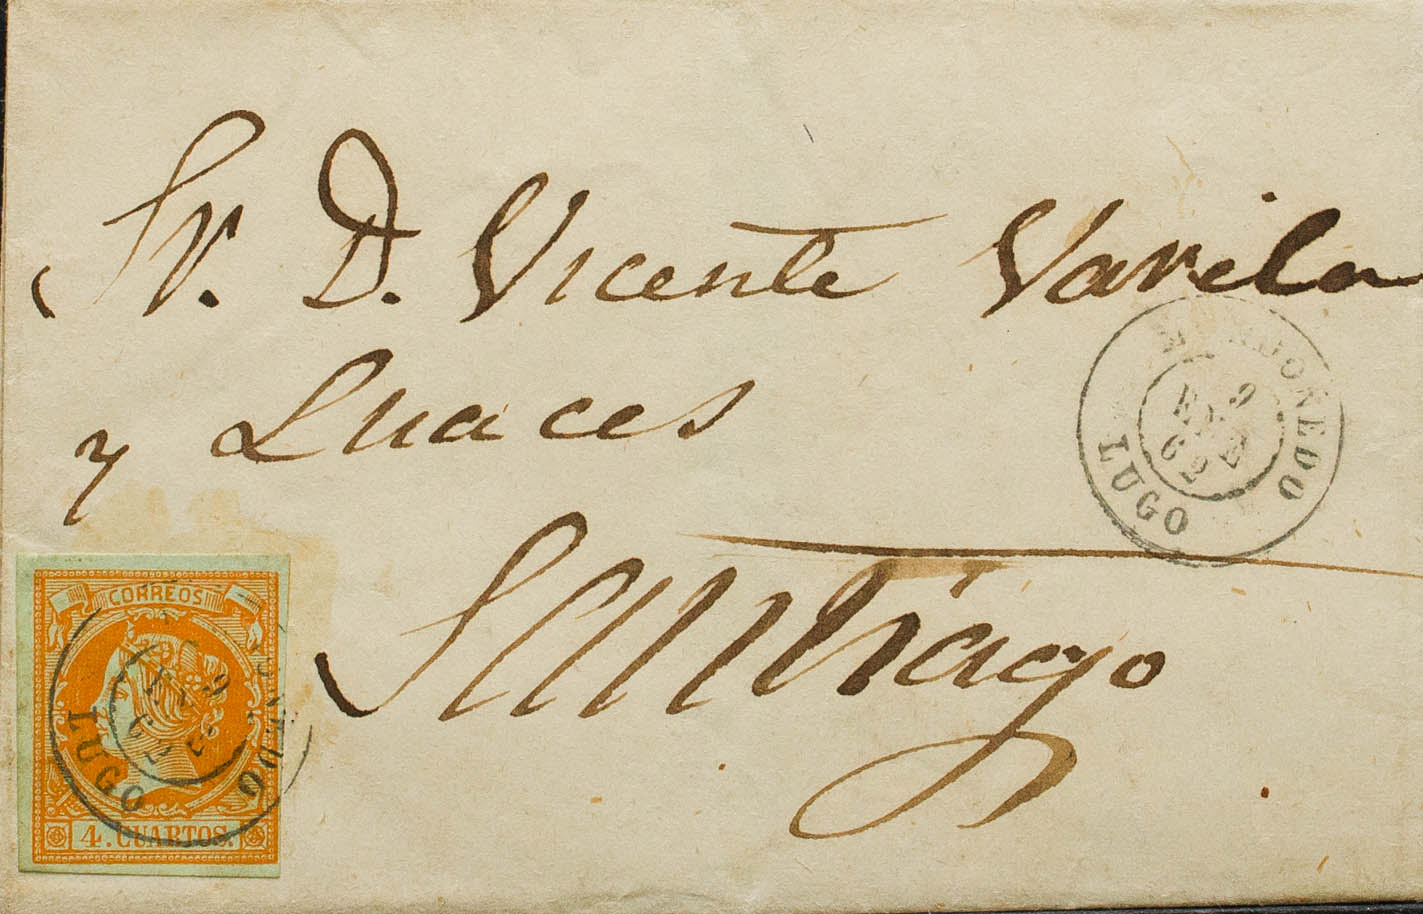 Sr. D. Vicente Varela
y Luaces
Santiago
MONDOÑEDO
9
ENE
62
LUGO
CORREOS
9
LUGO
4. CUARTOS.